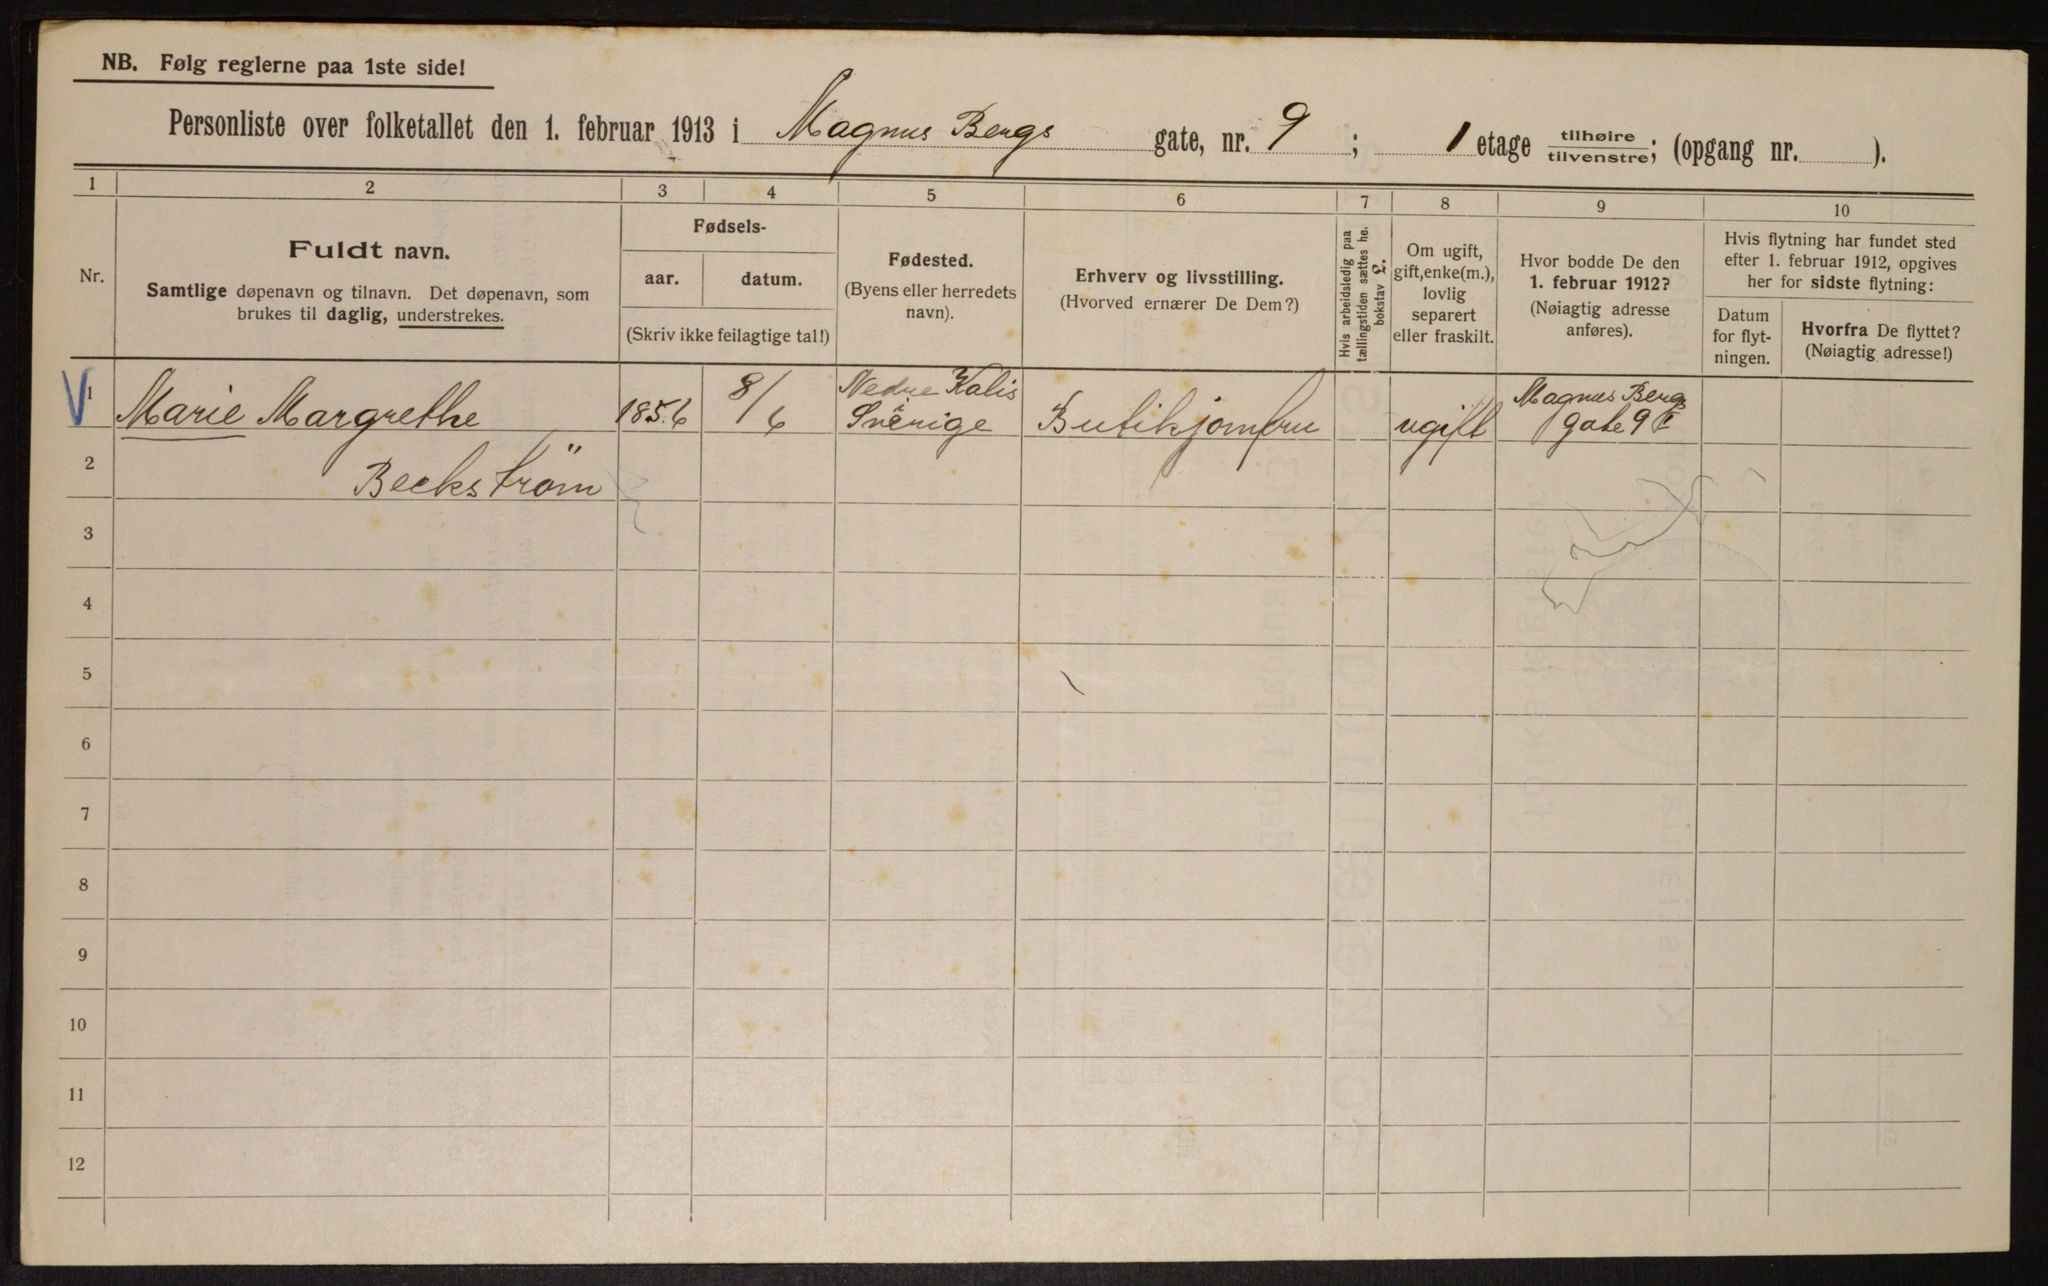 NB. Følg reglerne paa 1ste side!
Personliste over folketallet den 1. februar 1913 i Magnus Bergs gate, nr. 9 ; 1 etage tilhøire/tilvenstre; (opgang nr. ).
1 2 3 4 5 6 7 8 9 10
Nr.
Fuldt navn.
Samtlige døpenavn og tilnavn. Det døpenavn, som
brukes til daglig, understrekes.
Fødsels-
aar. datum.
(Skriv ikke feilagtige tal!)
Fødested.
(Byens eller herredets
navn).
Erhverv og livsstilling.
(Hvorved ernærer De Dem?)
Hvis arbeidsledig paa
tællingstiden sættes he.
bokstav L.
Om ugift,
gift, enke(m.),
lovlig
separert
eller fraskilt.
Hvor bodde De den
1. februar 1912?
(Nøiagtig adresse
anføres).
Hvis flytning har fundet sted
efter 1. februar 1912, opgives
her for sidste flytning:
Datum
for flyt-
ningen.
Hvorfra De flyttet?
(Nøiagtig adresse!)
1 Marie Margrethe 1856 8/6 Nedre Kalis Butikjomfru ugift Magnus Bergs
Sverige gate 9 I
2 Beckstrøm
3
4
5
6
7
8
9
10
11
12